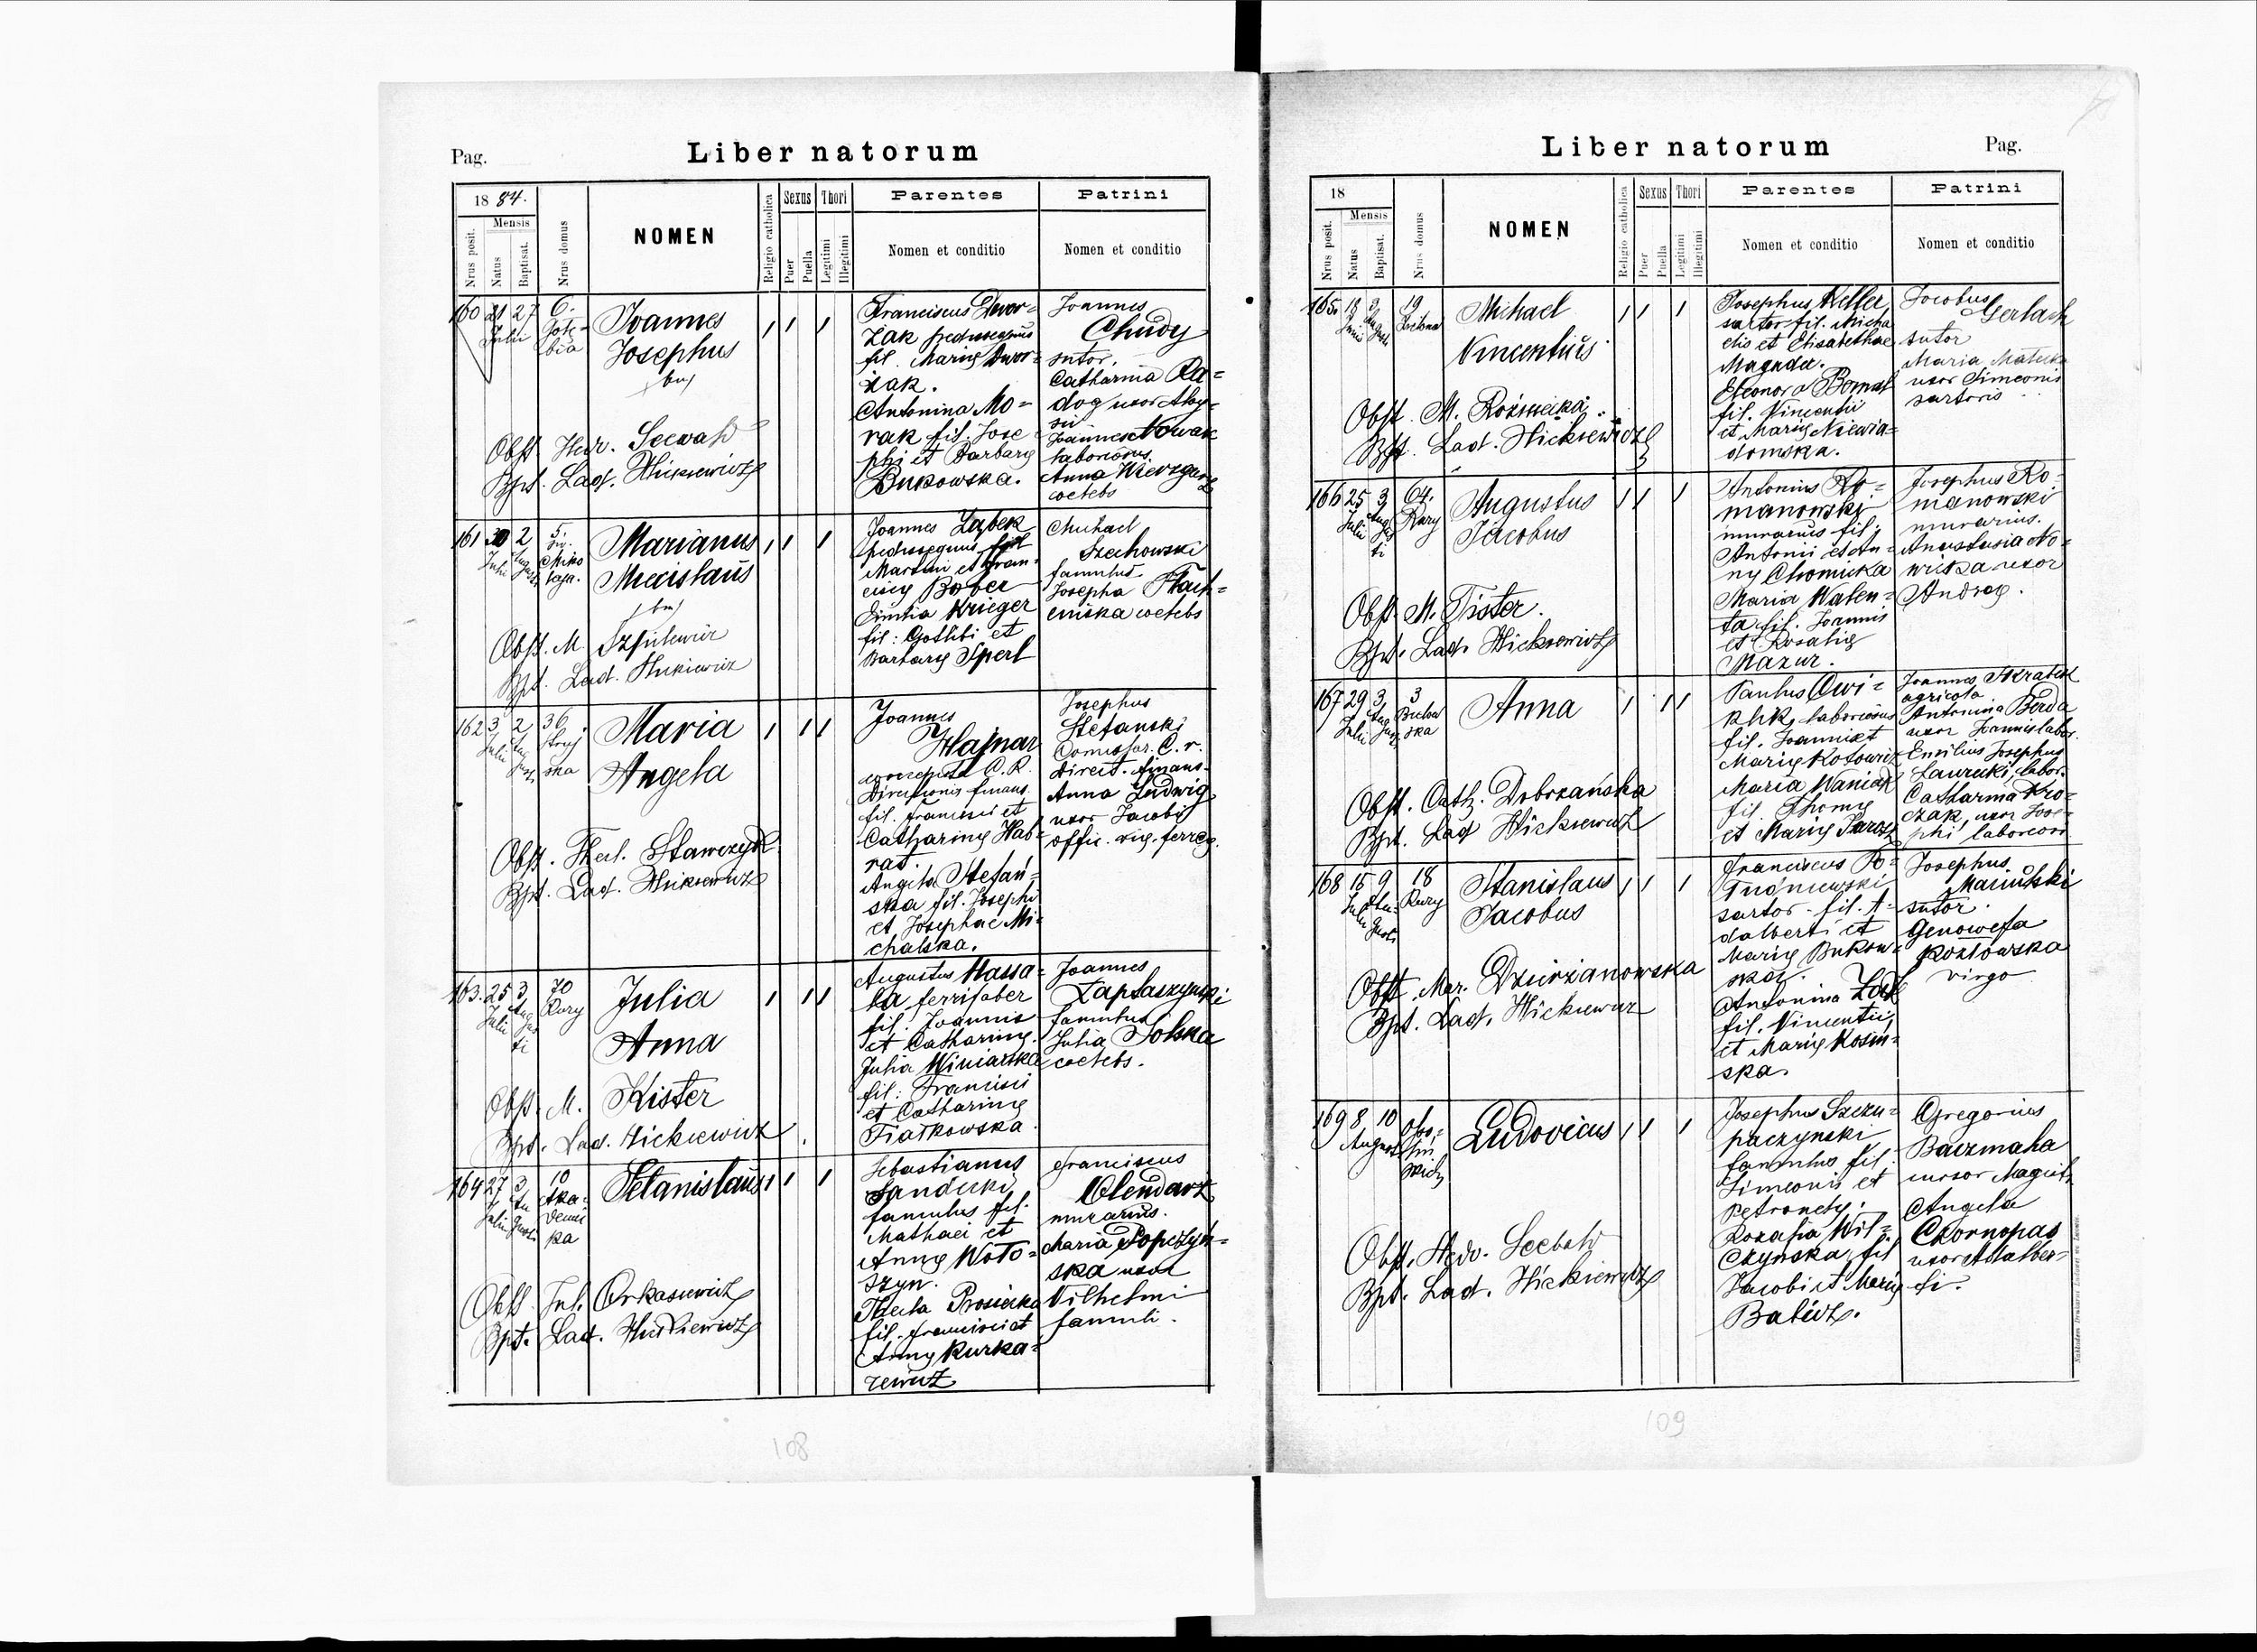 Pag.
Liber natorum
18 84.
Mensis
Nrus posit.
Natus
Baptisat.
Nrus domus
NOMEN
Religio catholica
Sexus
Puer
Puella
Thori
Legitimi
Illegitimi
Parentes
Nomen et conditio
Patrini
Nomen et conditio
160 21 27 6.
Julii
Joannes
Josephus
Obst. Hedv. Seewald
Bpt. Lad. Hickiewicz
Franciscus Dwor=
żak pedissequus
fil. Marię Dwor=
żak.
Antonina Mo=
rak fil. Jose
phi et Barbarę
Bukowska.
Joannes
Chudy
sutor.
Catharina Ra=
dog uxor Aloy=
sii
Joannes Nowak
laboriosus.
Anna
coelebs
161 30 2 5.
Julii
Miko
łaja.
Marianus
Miecislaus
Obst. M. Szpilewicz
Bpt. Lad. Hickiewicz
Joannes Ząbek
pedissequus fil
Martini et Fran=
ciscę Bober
Emilia Krieger
fil: Gotlibi et
Barbarę Sperl
Michael
Szechowski
famulus
Josepha
coelebs
162 3 2 36
Julii
Stryj
ska
Maria
Angela
Obst. Thecl. Sławczyk
Bpt. Lad. Hickiewicz
Joannes
Hajnar
concepista C. R.
Directionis finans.
fil. Francisci et
Catharinę Hab=
rat.
Angela Stefań=
ska fil. Josephi
et Josephae Mi=
chalska.
Josephus
Stefanski
Comissar. C. r.
Direct. finans.
Anna Ludwig
uxor Jacobi
offic. vię ferreę.
163. 25 3 70
Julii Augus
ti
Rury
Julia
Anna
Obst. M. Kister
Bpt. Lad. Hickiewicz
Augustus Massa=
ła ferrifaber
fil. Joannis
et Catharinę.
Julia Winiarska
fil: Francisci
et Catharinę
Fiałkowska.
Joannes
Zaplaszynski
famulus
Julia Solska
coelebs.
164 27 3 10
Julii Au
gusti
Aka=
demi
ka
Stanislaus
Obst. Jul. Orkasiewicz
Bpt. Lad. Hickiewicz
Sebastianus
Sandecki
famulus fil.
Mathaei et
Annę Woło=
szyn.
Thecla Prosiecka
fil. Francisci et
Annę Kurka=
rewicz
Franciscus
Olendarz
murarius.
Maria Popczyń=
ska uxor
Vilhelmi
famuli.
108
Liber natorum
Pag.
18
Mensis
Nrus posit.
Natus
Baptisat.
Nrus domus
NOMEN
Religio catholica
Sexus
Puer
Puella
Thori
Legitimi
Illegitimi
Parentes
Nomen et conditio
Patrini
Nomen et conditio
165. 19
Michael
Vincentius
Obst. M. Rożniecka.
Bpt. Lad. Hickiewicz
Josephus Keller
sartor fil. Micha
elis et Elisabethae
Magada.
Eleonora
fil. Vincentii
et Marię Niewia=
domska.
Jacobus
Gerlach
sutor
Maria
uxor Simeonis
sartoris
166 25 3 64.
Julii Augus
ti
Rury
Augustus
Jacobus
Obst. M. Tister.
Bpt. Lad. Hickiewicz
Antonius Ro=
manowski
murarius fil.
Antonii et An=
nę Chomicka
Maria Walen=
ta fil. Joannis
et Rosalię
Mazur.
Josephus Ro=
manowski
murarius.
Anastasia No=
wicka uxor
Andreę.
167 29 3 3
Julii
Anna
Obst. Cath. Dobrzańska
Bpt. Lad Hickiewicz
Paulus Cwi=
klik, laboriosus
fil. Joannis et
Marię Kotowicz
Maria Waniak
fil. Thomę
et Marię Jarosz
Joannes
agricola.
Antonina Berda
uxor Joannis labor.
Emilius Josephus
Laurecki, labor.
Catharina Kro=
czak, uxor Jose=
phi laboriosi
168 15 9 18
Julii Au=
gusti
Rury
Stanislaus
Jacobus
Obst. Mar. Dzierżanowska
Bpt. Lad. Hickiewicz
Franciscus
sartor. fil. A=
dalberti et
Marię Bukow=
ska.
Antonina
fil. Vincentii,
et Marię Kosin=
ska.
Josephus
sutor.
Genowefa
Kozłowska
virgo
169 8 10
Augusti
Ludovicus
Obst. Hedv. Seebald
Bpt. Lad. Hickiewicz
Josephus Szczu=
paczynski
famulus fil.
Simeonis et
Petronelę.
Rozalia Wil=
czyńska, fil
Jacobi et Marię
Balicz.
Gregorius
Baczmaha
cursor Magist.
Angela
Czornopas
uxor Adalber=
ti.
109